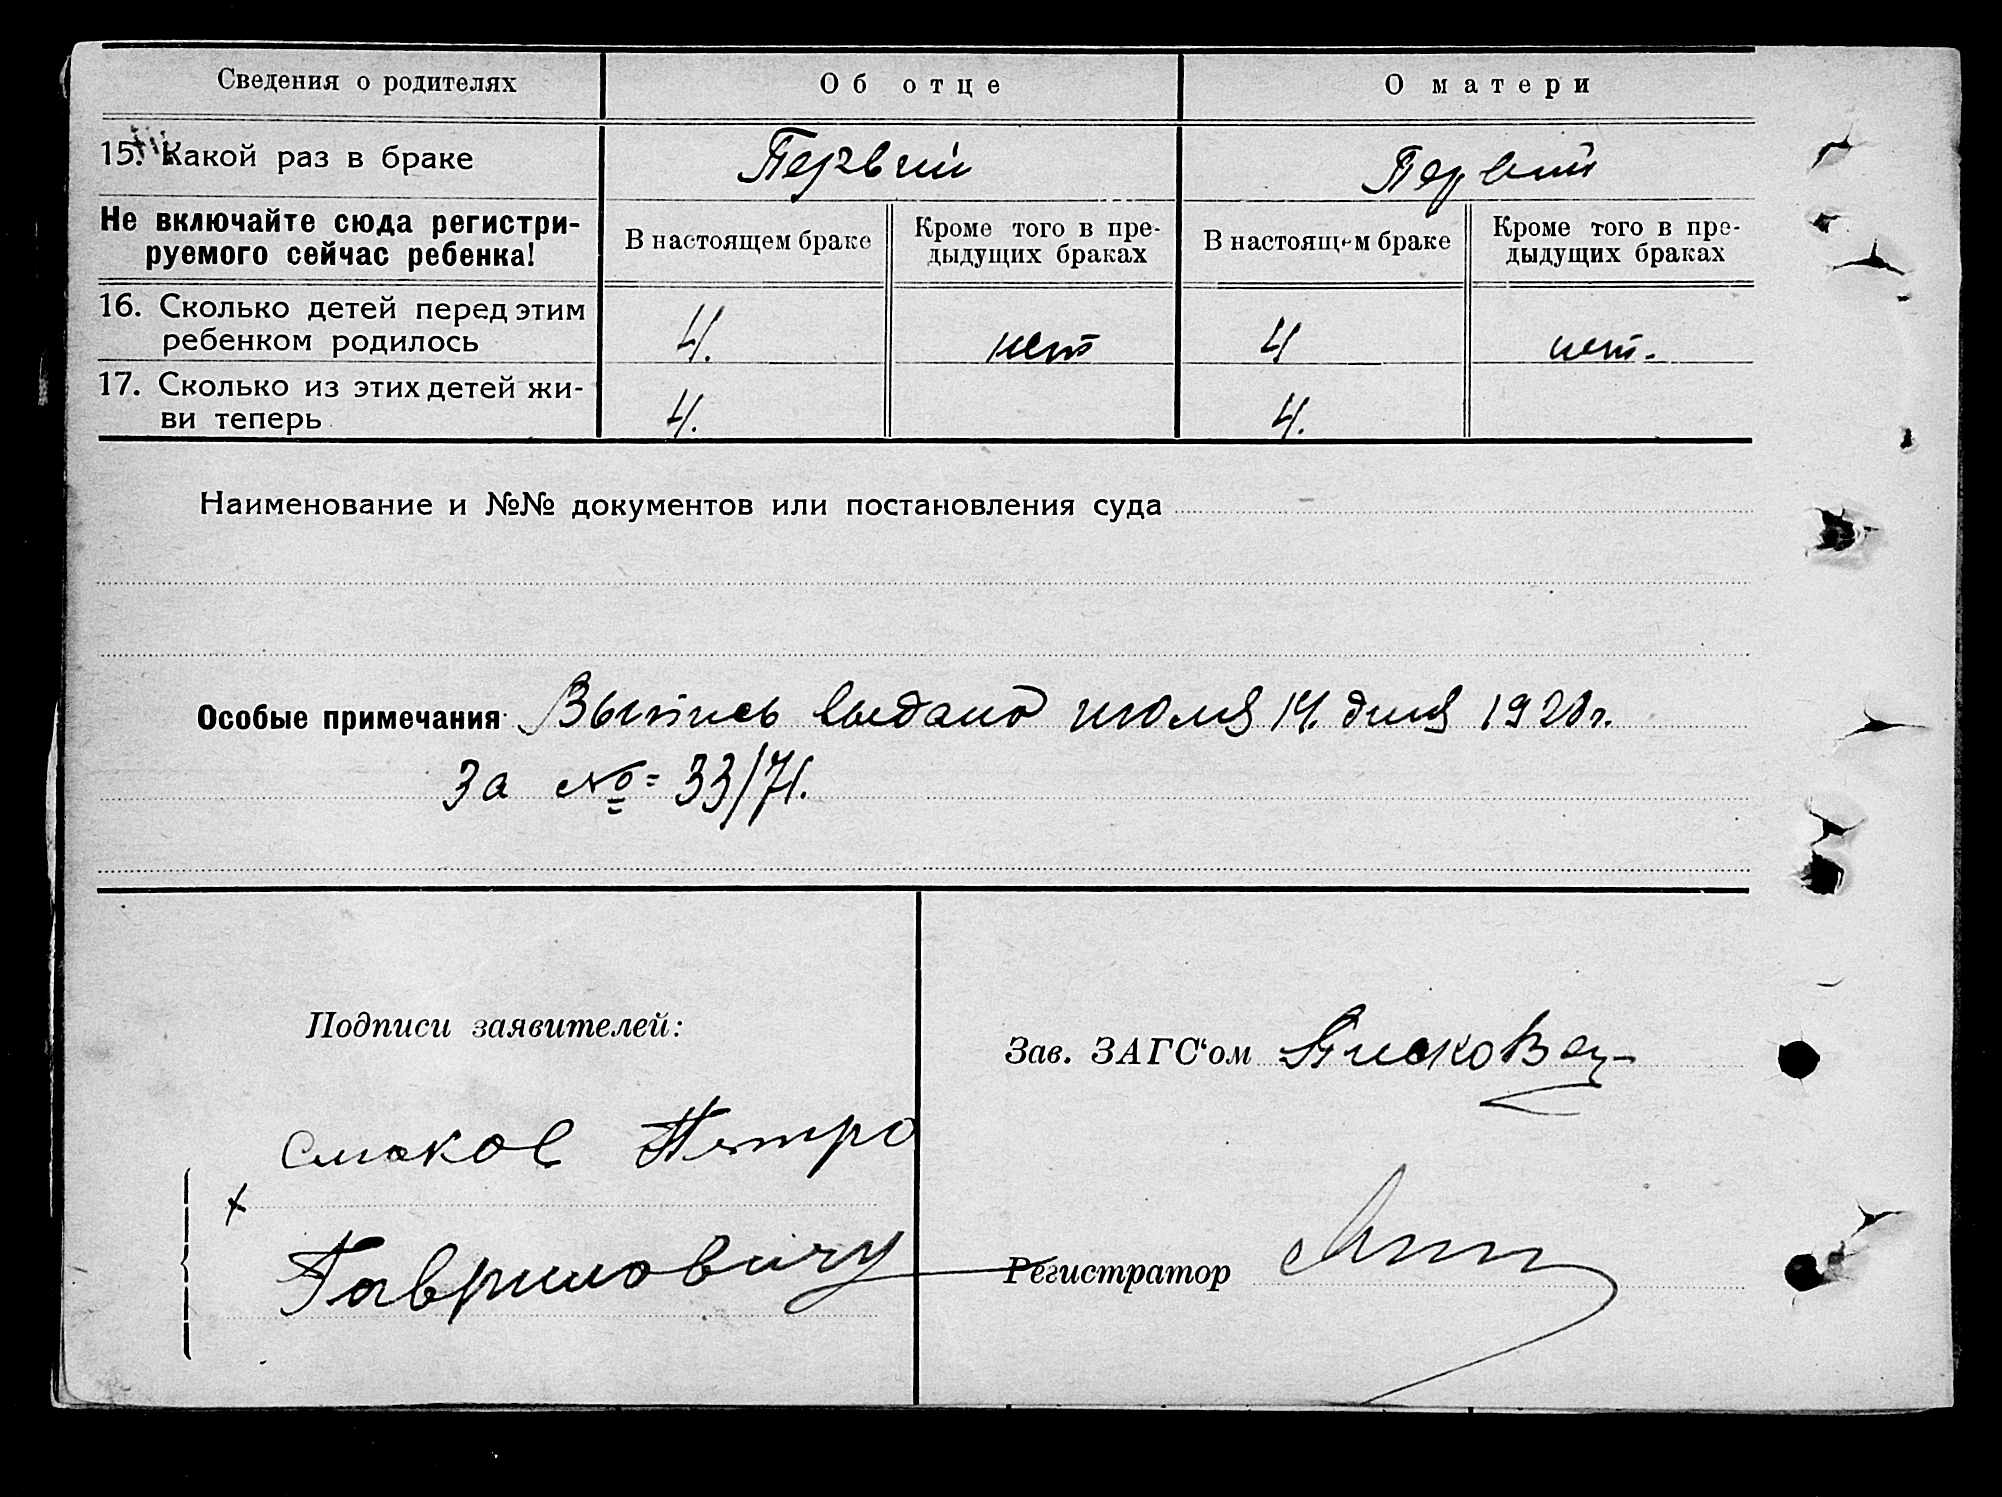 Сведения о родителях
Об отце
О матери
15. Какой раз в браке
Первый
Первый
Не включайте сюда регистри-
руемого сейчас ребенка!
В настоящем браке
Кроме того в пре-
дыдущих браках
В настоящем браке
Кроме того в пре-
дыдущих браках
16. Сколько детей перед этим
ребенком родилось
4.
нет
4
нет.
17. Сколько из этих детей жи-
ви теперь
4.
4.
Наименование и №№ документов или постановления суда
Особые примечания Выпись выдано июля 14. дня 1928 г.
За № 33/71.
Подписи заявителей:
Зав. ЗАГС'ом
Петро
Гавриловичу
Регистратор